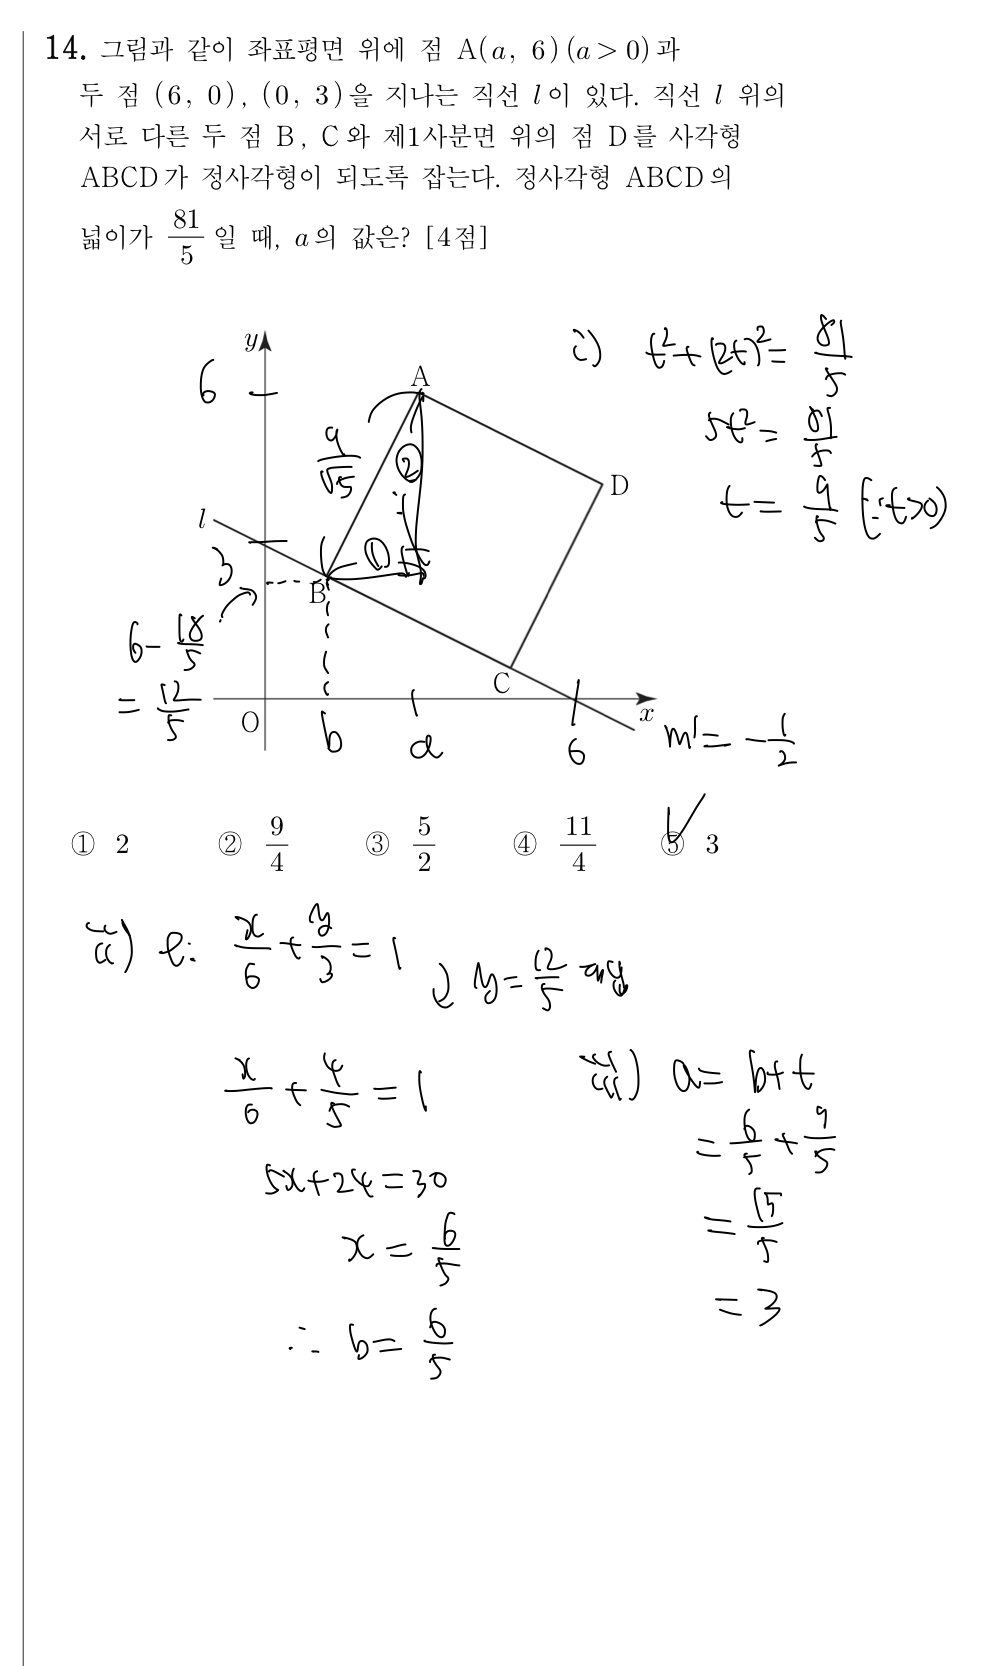 14. 그림과 같이 좌표평면 위에 점 A(a, 6)(a>0)과
두 점 (6, 0), (0, 3)을 지나는 직선 l이 있다. 직선 l 위의
서로 다른 두 점 B, C와 제1사분면 위의 점 D를 사각형
ABCD가 정사각형이 되도록 잡는다. 정사각형 ABCD의
넓이가 81/5 일 때, a의 값은? [4점]
y
6
A
9/√5
②
D
l
3
①
B
6-18/5
=12/5
C
O
b
a
6
x
m'=-1/2
i) t²+(2t)²=81/5
5t²=81/5
t=9/5 (∵t>0)
① 2 ② 9/4 ③ 5/2 ④ 11/4 ⑤ 3
ii) l: x/6+y/3=1
y=12/5 대입
x/6+4/5=1
5x+24=30
x=6/5
∴ b=6/5
iii) a=b+t
=6/5+9/5
=15/5
=3